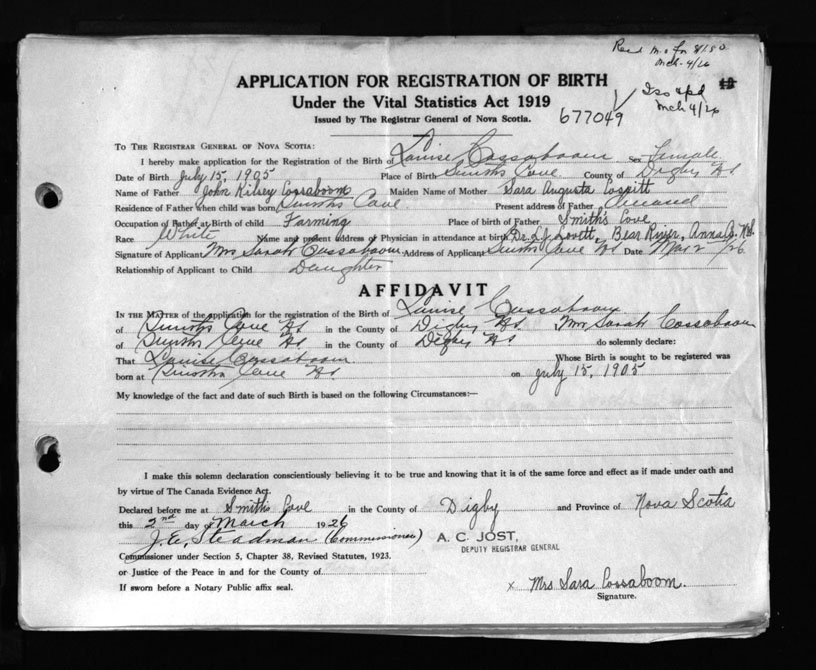 Recd m.o for $1.50
Mch. 4/26
APPLICATION FOR REGISTRATION OF BIRTH
Under the Vital Statistics Act 1919
Issued by The Registrar General of Nova Scotia.
677049
Mch 4/26
TO THE REGISTRAR GENERAL OF NOVA SCOTIA:
I hereby make application for the Registration of the Birth of Louise Cossaboom Sex Female
Date of Birth July 15, 1905 Place of Birth Smiths Cove County of Digby NS
Name of Father John Kilsey Cossaboom Maiden Name of Mother Sara Augusta Cossitt
Residence of Father when child was born Smiths Cove Present address of Father Deceased
Occupation of Father at Birth of child Farming Place of birth of Father Smith's Cove
Race White Name and present address of Physician in attendance at birth Dr. L.J. Lovett, Bear River, Anna Co. N.S.
Signature of Applicant Mrs Sarah Cossaboom Address of Applicant Smiths Cove NS Date Mar 2 - /26
Relationship of Applicant to Child Daughter
AFFIDAVIT
IN THE MATTER of the application for the registration of the Birth of Louise Cossaboom
of Smiths Cove NS. in the County of Digby NS. Mrs Sarah Cossaboom
of Smiths Cove NS. in the County of Digby NS do solemnly declare:
That Louise Cossaboom Whose Birth is sought to be registered was
born at Smiths Cove NS. on July 15, 1905
My knowledge of the fact and date of such Birth is based on the following Circumstances:—
I make this solemn declaration conscientiously believing it to be true and knowing that it is of the same force and effect as if made under oath and
by virtue of The Canada Evidence Act.
Declared before me at Smiths Cove in the County of Digby and Province of Nova Scotia
this 2nd day of March 1926
J.E. Steadman (Commissioner) A. C. JOST,
DEPUTY REGISTRAR GENERAL
Commissioner under Section 5, Chapter 38, Revised Statutes, 1923.
or Justice of the Peace in and for the County of
If sworn before a Notary Public affix seal.
x Mrs Sara Cossaboom.
Signature.